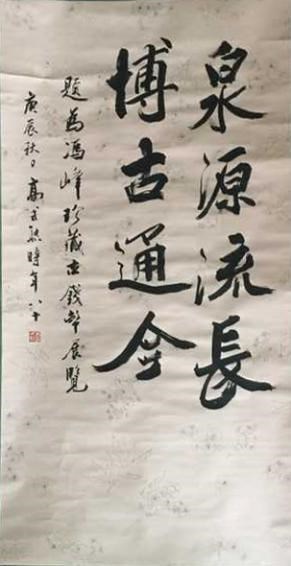 泉源流長
博古通今
題為馮峰珍藏古錢幣展覽
庚辰秋日高式熊時年八十